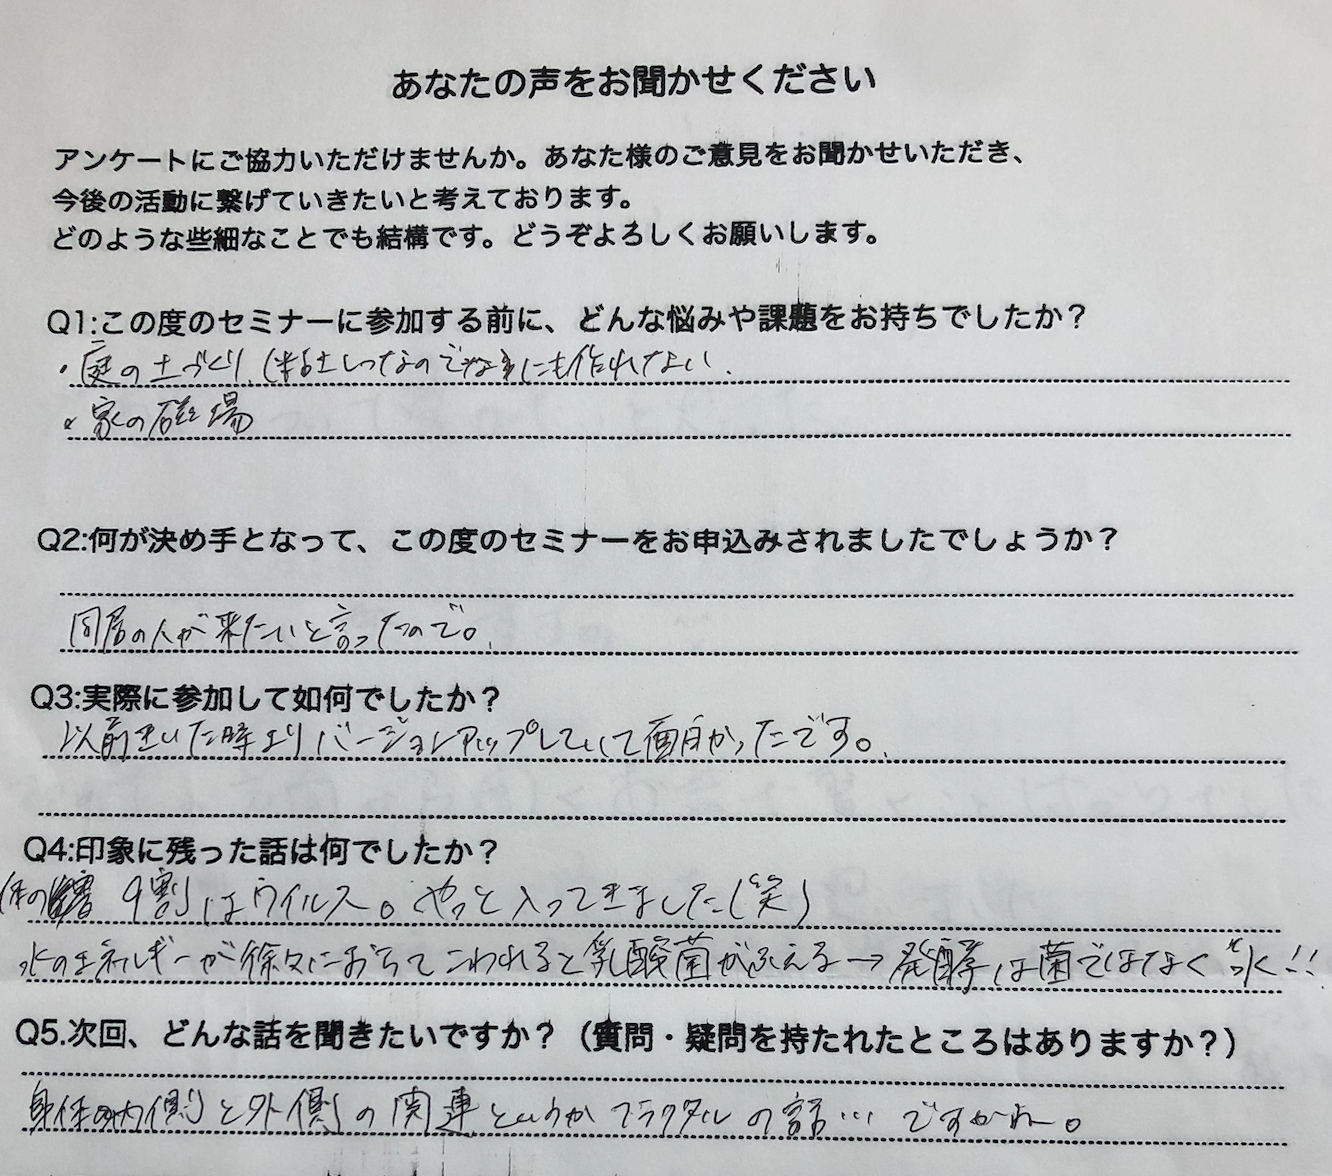 あなたの声をお聞かせください
アンケートにご協力いただけませんか。あなた様のご意見をお聞かせいただき、
今後の活動に繋げていきたいと考えております。
どのような些細なことでも結構です。どうぞよろしくお願いします。
Q1:この度のセミナーに参加する前に、どんな悩みや課題をお持ちでしたか？
・庭の土づくり、(粘土しつなので にも作れない.
・家の磁場
Q2:何が決め手となって、この度のセミナーをお申込みされましたでしょうか？
同居の人が来たいと言ったので。
Q3:実際に参加して如何でしたか？
以前きいた時よりバージョンアップしていて面白かったです。
Q4:印象に残った話は何でしたか？
体の 9割はウイルス。やっと入ってきました(笑)
水のエネルギーが徐々におちてこわれると乳酸菌がふえる→発酵は菌ではなく水!!
Q5.次回、どんな話を聞きたいですか？（質問・疑問を持たれたところはありますか？）
身体の内側と外側の関連というかフラクタルの話…ですかね。